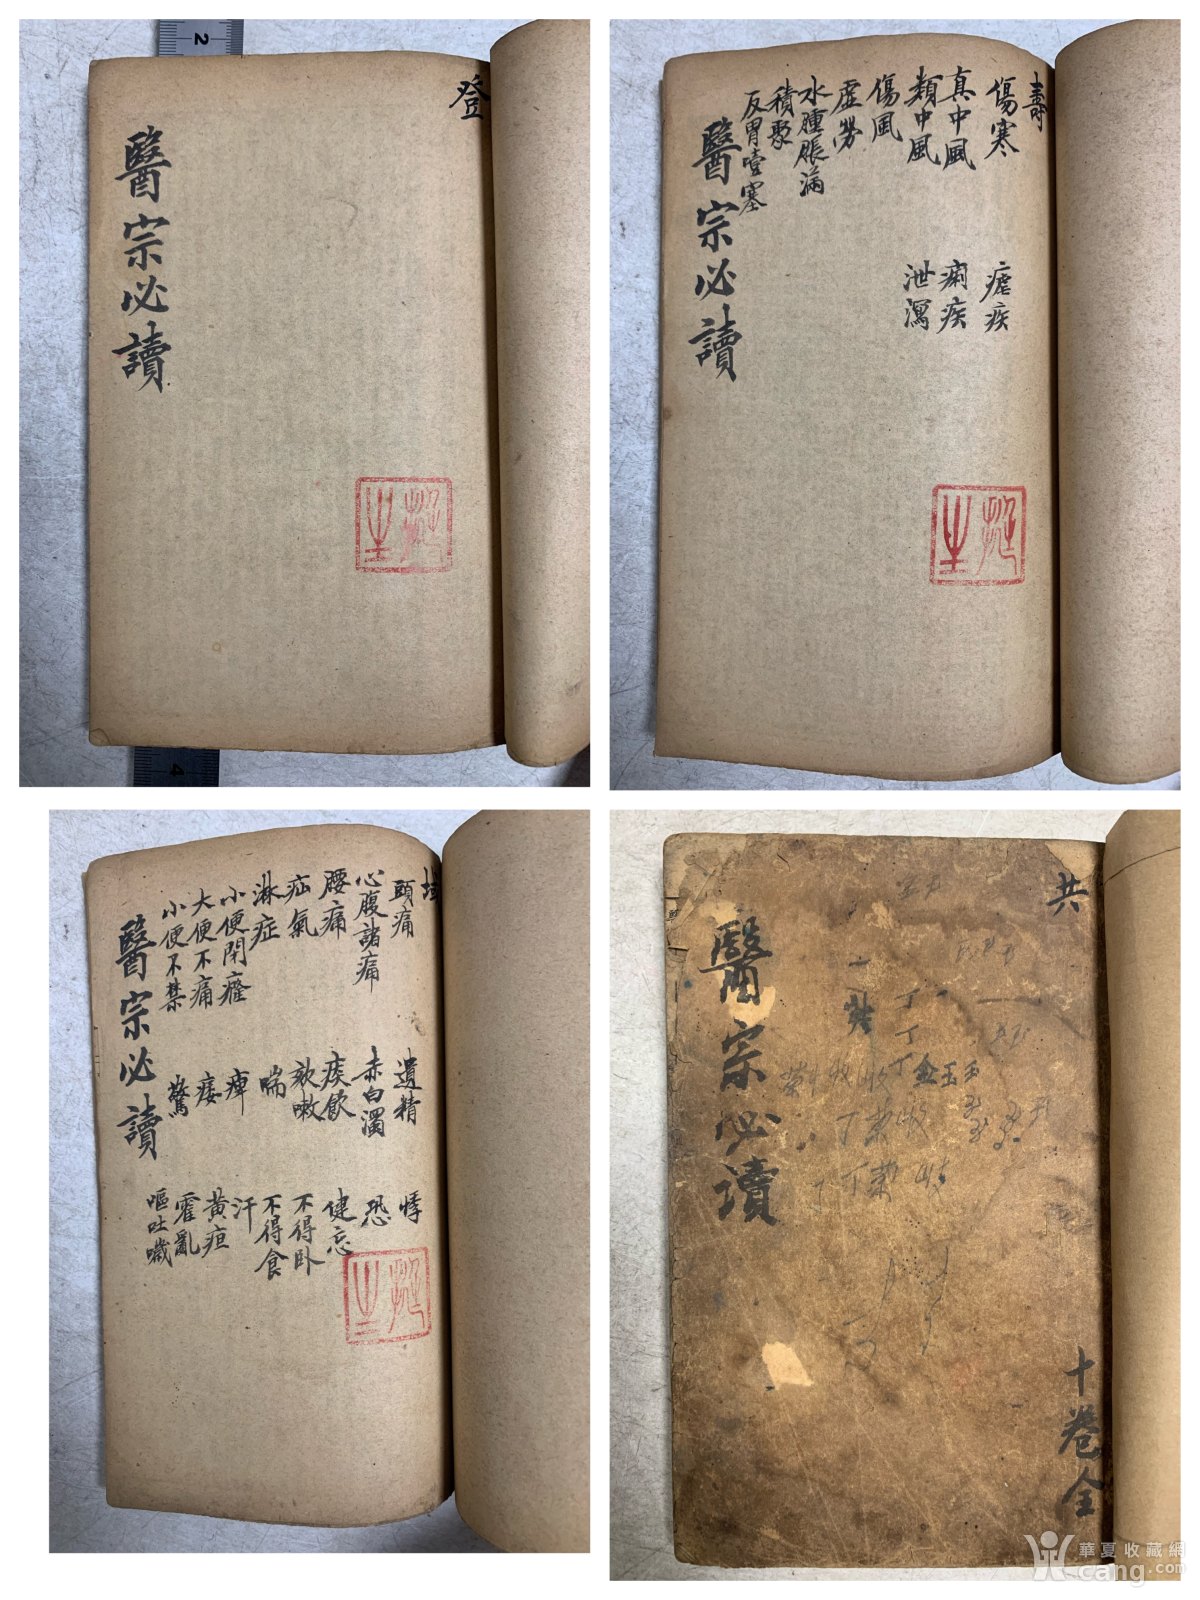 2
登
醫宗必讀
4
壽
傷寒
真中風
類中風
傷風
虛勞
水腫脹滿
積聚
反胃噎塞
瘧疾
痢疾
泄瀉
醫宗必讀
域
頭痛
心腹諸痛
腰痛
疝氣
淋症
小便閉癃
大便不痛
小便不禁
遺精
赤白濁
痰飲
欬嗽
喘
痺
痿
驚
悸
恐
健忘
不得臥
不得食
汗
黃疸
霍亂
嘔吐噦
醫宗必讀
共
十卷全
醫宗必讀
華夏收藏網
cang.com